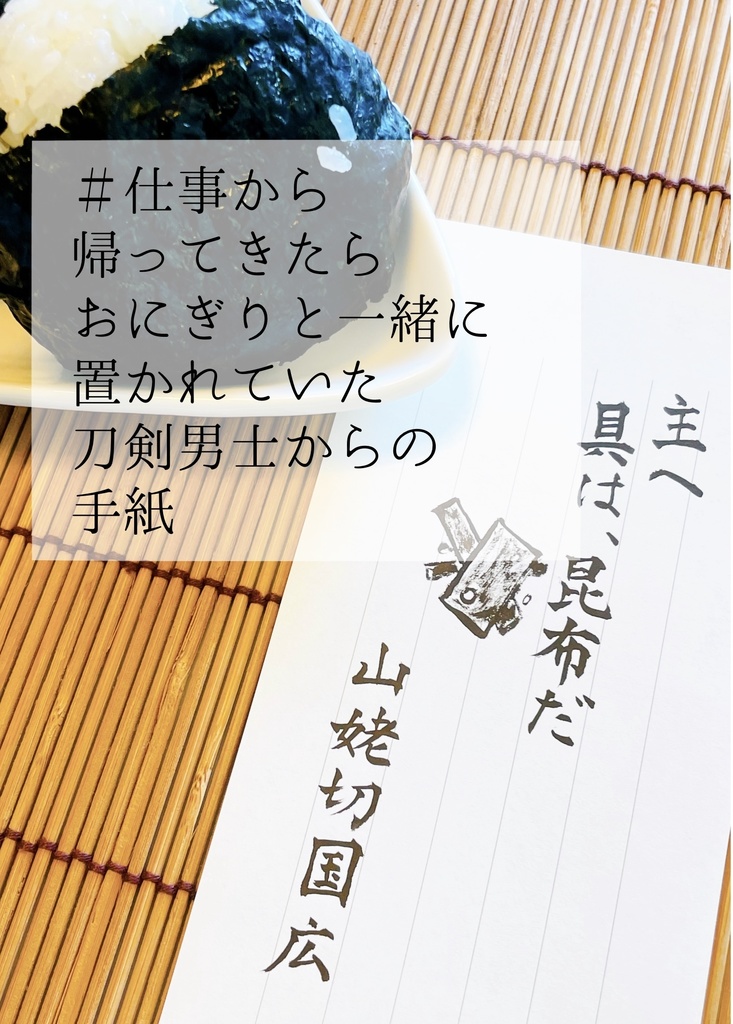 #仕事から
帰ってきたら
おにぎりと一緒に
置かれていた
刀剣男士からの
手紙
主へ
具は、昆布だ
山姥切国広